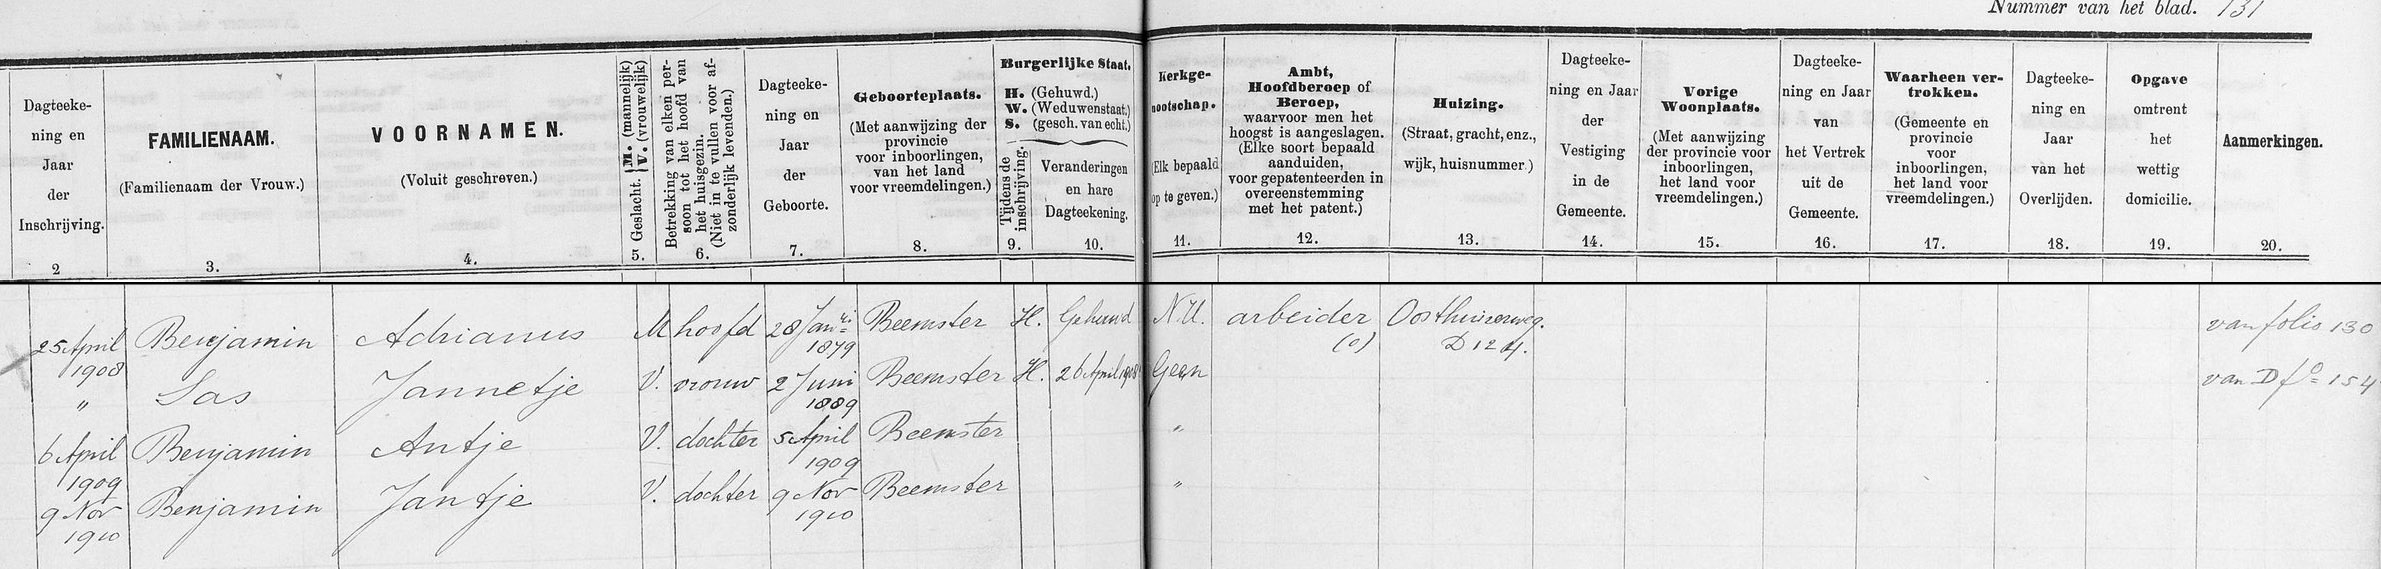 Nummer van het blad. 131
Dagteeke-
ning en
Jaar
der
Inschrijving.
2
FAMILIENAAM.
(Familienaam der Vrouw.)
3.
VOORNAMEN.
(Voluit geschreven.)
4.
Geslacht. M. (mannelijk) V. (vrouwelijk)
5.
Betrekking van elken per-
soon tot het hoofd van
het huisgezin.
(Niet in te vullen voor af-
zonderlijk levenden.)
6.
Dagteeke-
ning en
Jaar
der
Geboorte.
7.
Geboorteplaats.
(Met aanwijzing der
provincie
voor inboorlingen,
van het land
voor vreemdelingen.)
8.
Burgerlijke Staat.
H. (Gehuwd.)
W. (Weduwenstaat.)
S. (gesch. van echt.)
Tijdens de
inschrijving.
9.
Veranderingen
en hare
Dagteekening.
10.
Kerkge-
nootschap.
(Elk bepaald
op te geven.)
11.
Ambt,
Hoofdberoep of
Beroep,
waarvoor men het
hoogst is aangeslagen.
(Elke soort bepaald
aanduiden,
voor gepatenteerden in
overeenstemming
met het patent.)
12.
Huizing.
(Straat, gracht, enz.,
wijk, huisnummer.)
13.
Dagteeke-
ning en Jaar
der
Vestiging
in de
Gemeente.
14.
Vorige
Woonplaats.
(Met aanwijzing
der provincie voor
inboorlingen,
het land voor
vreemdelingen.)
15.
Dagteeke-
ning en Jaar
van
het Vertrek
uit de
Gemeente.
16.
Waarheen ver-
trokken.
(Gemeente en
provincie
voor
inboorlingen,
het land voor
vreemdelingen.)
17.
Dagteeke-
ning en
Jaar
van het
Overlijden.
18.
Opgave
omtrent
het
wettig
domicilie.
19.
Aanmerkingen.
20.
25 April 1908 Benjamin Adrianus M hoofd 28 Janri 1879 Beemster H. Gehuwd N.H. arbeider (o) Oosthuizerweg. D 124. van folio 130
" Sas Jannetje V. vrouw 2 Juni 1889 Beemster H. 26 April 1908 Geen van D fo 154
6 April 1909 Benjamin Antje V. dochter 5 April 1909 Beemster "
9 Nov 1910 Benjamin Jantje V. dochter 9 Nov 1910 Beemster "